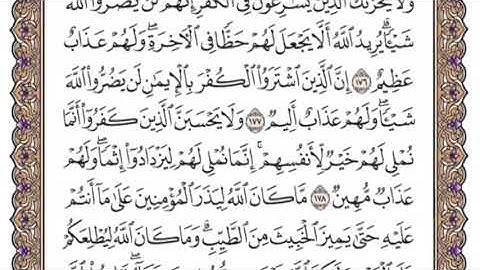 وَلَا يَحْزُنكَ ٱلَّذِينَ يُسَٰرِعُونَ فِى ٱلْكُفْرِ إِنَّهُمْ لَن يَضُرُّوا۟ ٱللَّهَ
شَيْـًٔا ۗ يُرِيدُ ٱللَّهُ أَلَّا يَجْعَلَ لَهُمْ حَظًّا فِى ٱلْـَٔاخِرَةِ ۖ وَلَهُمْ عَذَابٌ
عَظِيمٌ ١٧٦ إِنَّ ٱلَّذِينَ ٱشْتَرَوُا۟ ٱلْكُفْرَ بِٱلْإِيمَٰنِ لَن يَضُرُّوا۟ ٱللَّهَ
شَيْـًٔا ۖ وَلَهُمْ عَذَابٌ أَلِيمٌ ١٧٧ وَلَا يَحْسَبَنَّ ٱلَّذِينَ كَفَرُوٓا۟ أَنَّمَا
نُمْلِى لَهُمْ خَيْرٌ لِّأَنفُسِهِمْ ۚ إِنَّمَا نُمْلِى لَهُمْ لِيَزْدَادُوٓا۟ إِثْمًا ۚ وَلَهُمْ
عَذَابٌ مُّهِينٌ ١٧٨ مَّا كَانَ ٱللَّهُ لِيَذَرَ ٱلْمُؤْمِنِينَ عَلَىٰ مَآ أَنتُمْ
عَلَيْهِ حَتَّىٰ يَمِيزَ ٱلْخَبِيثَ مِنَ ٱلطَّيِّبِ ۗ وَمَا كَانَ ٱللَّهُ لِيُطْلِعَكُمْ